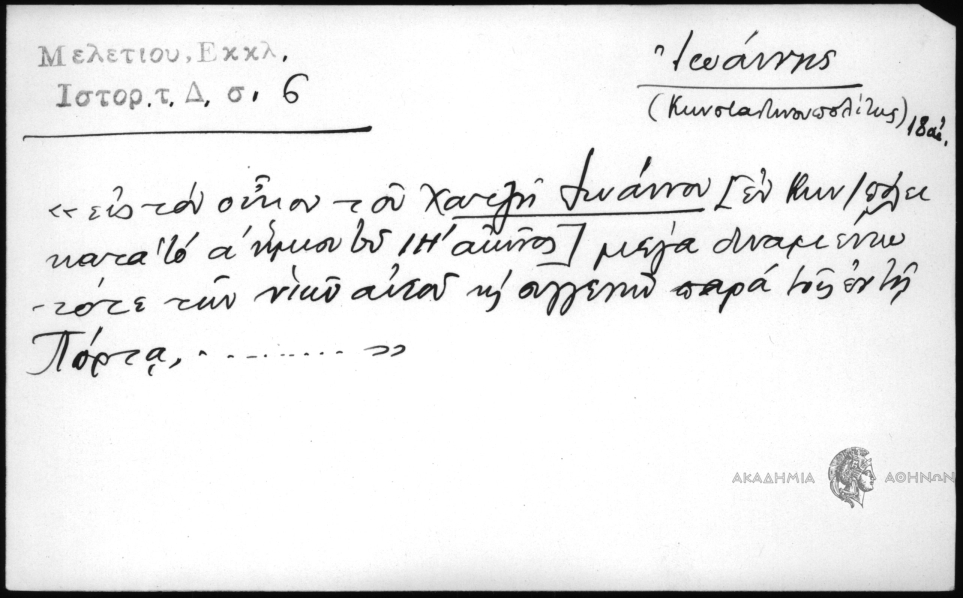 Μελετίου, Εκκλ.
Ιστορ. τ. Δ. σ. 6
Ἰωάννης
(Κωνσταντινουπολίτης) 18 αἰ.
«εἰς τὸν οἶκον τοῦ Χατζῆ Ἰωάννου [ἐν Κων/πόλει
κατὰ τὸ α' ἥμισυ τοῦ ΙΗ' αἰῶνος] μεγα δυναμένου
τότε τῶν υἱῶν αὐτοῦ κ συγγενῶν παρὰ τοῖς ἐν τῇ
Πόρτᾳ, . . . . . . . . . . »
ΑΚΑΔΗΜΙΑ ΑΘΗΝΩΝ